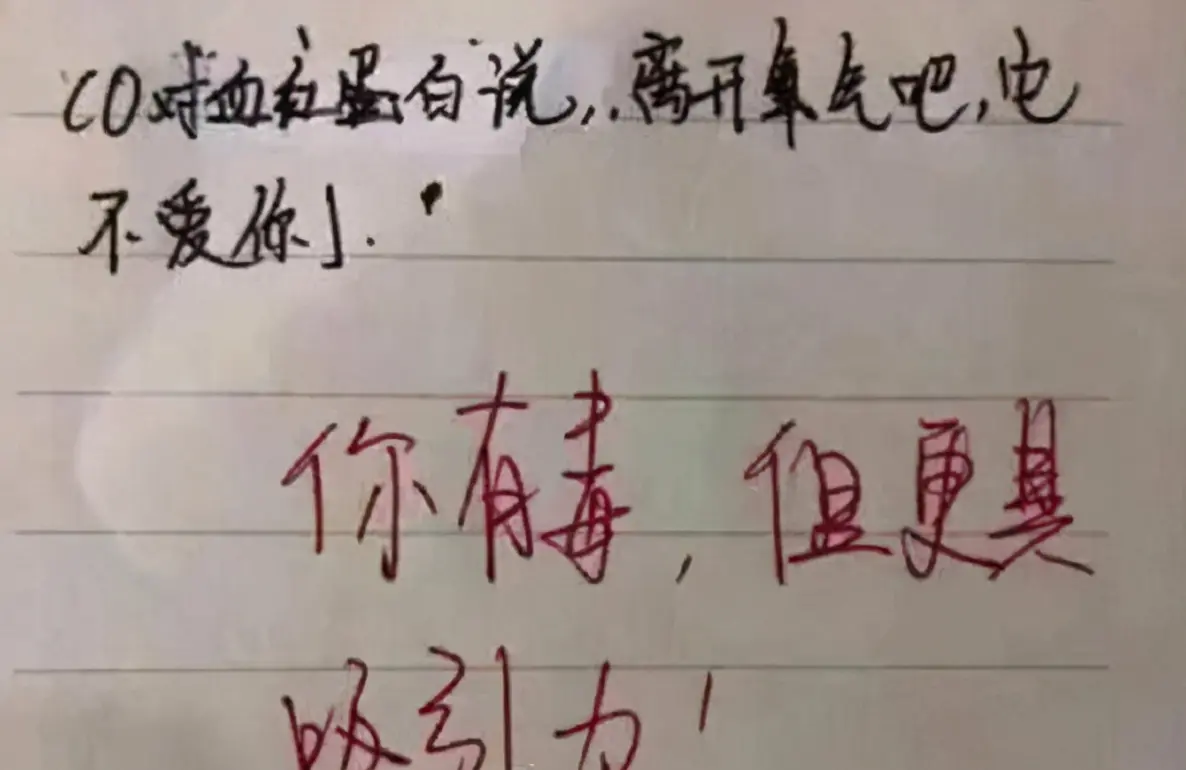 CO对血红蛋白说,离开氧气吧,它
不爱你」.
你有毒,但更具
吸引力!